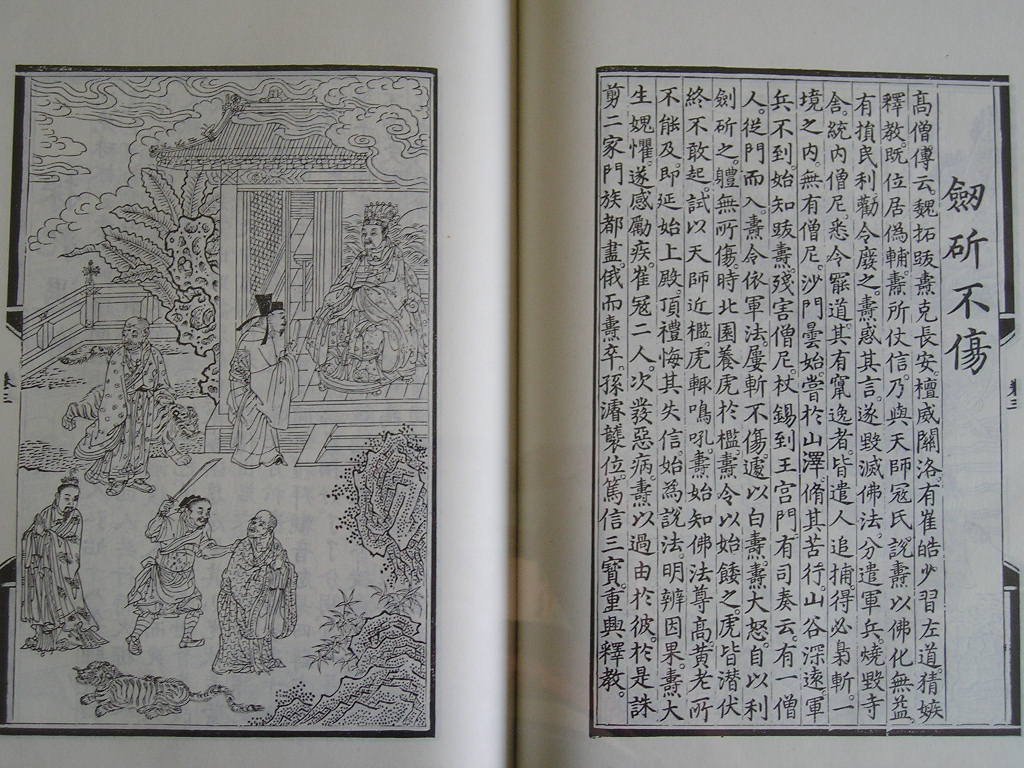 劒斫不傷
高僧傳云。魏拓䟦燾克長安。擅威關洛。有崔皓少習左道。猜嫉
釋教。既位居僞輔。燾所仗信。乃與天師寇氏。說燾以佛化無益。
有損民利。勸令廢之。燾惑其言。遂毀滅佛法。分遣軍兵。燒毀寺
舍。統内僧尼。悉令罷道。其有竄逸者。皆遣人追捕。得必梟斬。一
境之内。無有僧尼。沙門曇始。嘗於山澤。脩其苦行。山谷深遠。軍
兵不到。始知䟦燾殘害僧尼。杖錫到王宫門。有司奏云。有一僧
人。從門而入。燾令依軍法。屢斬不傷。遽以白燾。燾大怒。自以利
劒斫之。軆無所傷。時北園養虎於檻。燾令以始餧之。虎皆潜伏
終不敢起。試以天師近檻。虎輒鳴吼。燾始知佛法尊高。黄老所
不能及。即延始上殿。頂禮悔其失信。始為說法。明辨因果。燾大
生媿懼。遂感勵疾。崔冦二人。次發惡病。燾以過由於彼。於是誅
剪二家。門族都盡。俄而燾卒。孫濬襲位。篤信三寳。重興釋教。
卷三
卷三